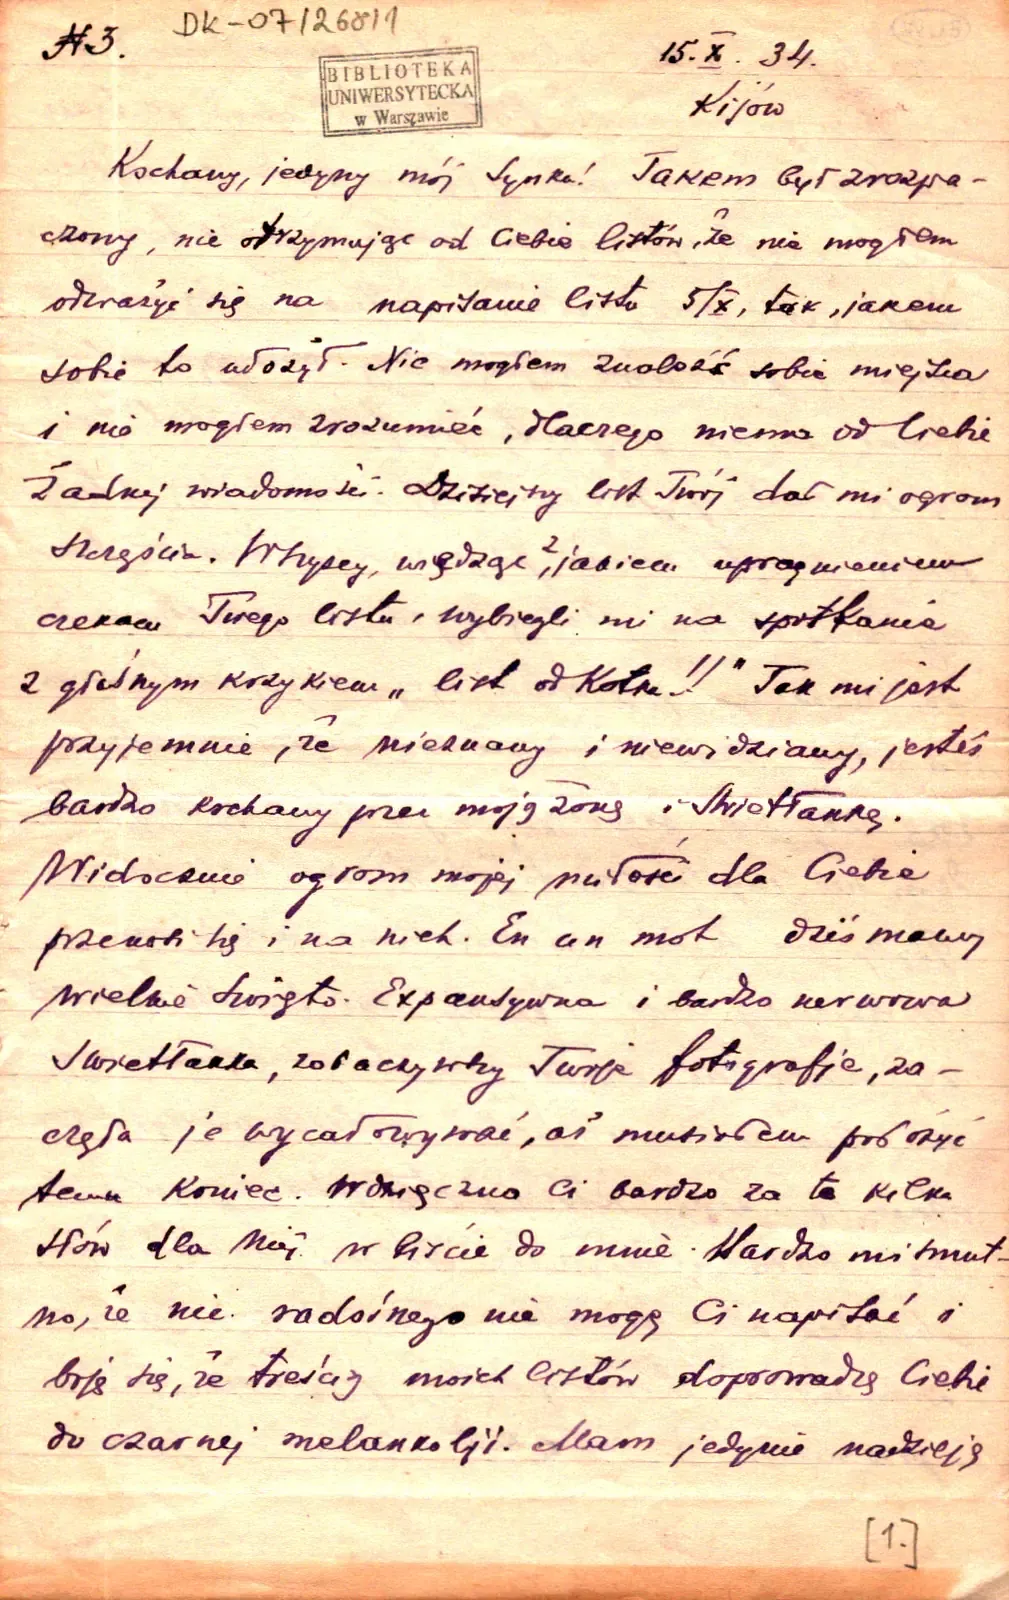 №3.
DK-07/268/1
BIBLIOTEKA
UNIWERSYTECKA
w Warszawie
15.X. 34.
Kijów
Kochany, jedyny mój Synku! Takem był zrozpa-
czony, nie otrzymując od Ciebie listów, że nie mogłem
odważyć się na napisanie listu 5/X, tak, jakem
sobie to ułożył. Nie mogłem znaleźć sobie miejsca
i nie mogłem zrozumieć, dlaczego niema od Ciebie
żadnej wiadomości. Dzisiejszy list Twój dał mi ogrom
szczęścia. Wszyscy, wiedząc, z jakiem upragnieniem
czekam Twego listu, wybiegli mi na spotkanie
z głośnym krzykiem „list od Kotka!!” Tak mi jest
przyjemnie, że nieznany i niewidziany, jesteś
bardzo kochany przez moją żonę i Swietłankę.
Widocznie ogrom mojej miłości dla Ciebie
przenosi się i na nich. En un mot dziś mamy
wielkie święto. Expansywna i bardzo nerwowa
Swietłanka, zobaczywszy Twoje fotografje, za-
częła je wycałowywać, aż musiałem położyć
temu koniec. Wdzięczna Ci bardzo za te kilka
słów dla Niej w liście do mnie. Bardzo mi smut-
no, że nic radośnego nie mogę Ci napisać i
boję się, że treścią moich listów doprowadzę Ciebie
do czarnej melankolji. Mam jedynie nadzieję
[1.]